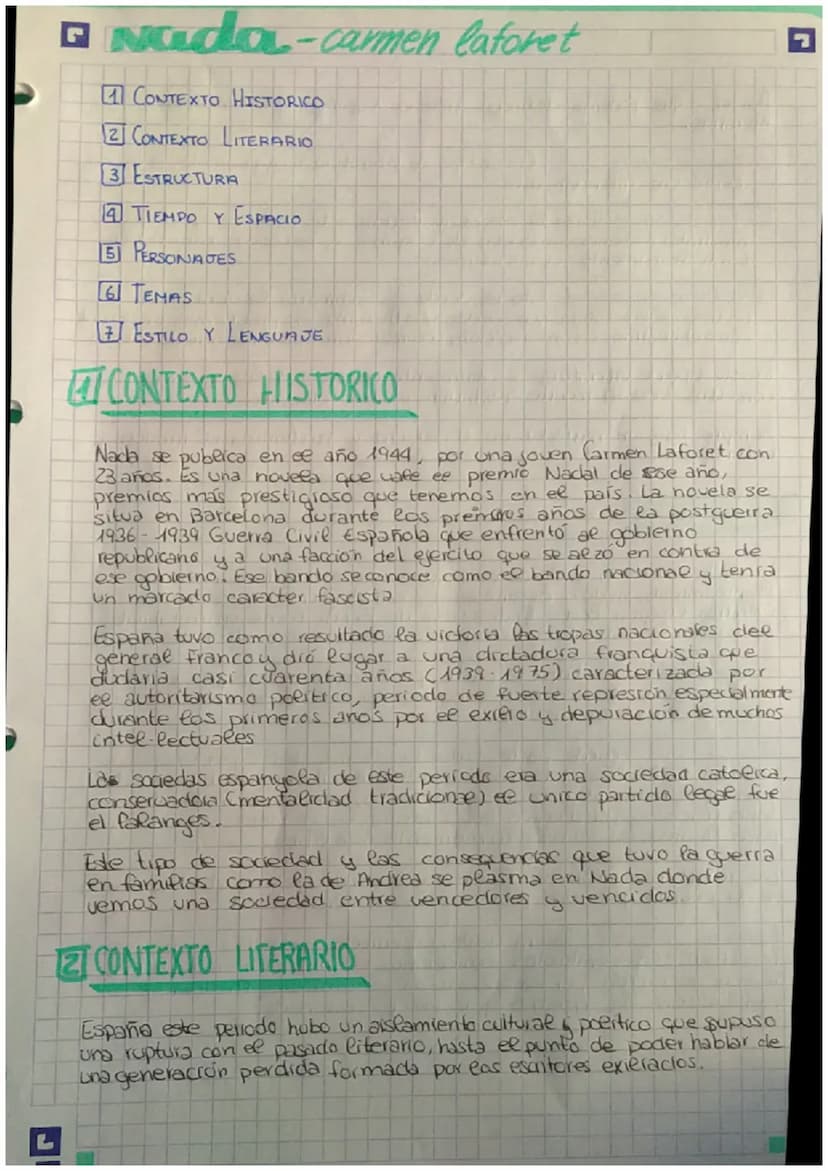 Nada - carmen laforet
1 CONTEXTO HISTORICO
2 CONTEXTO LITERARIO
3 ESTRUCTURA
4 TIEMPO Y ESPACIO
5 PERSONAJES
6 TEMAS
7 ESTILO Y LENGUAJE
1 CONTEXTO HISTORICO
Nada se publica en el año 1944, por una joven Carmen Laforet con
23 años. Es una novela que el premio Nadal de ese año,
premios más prestigioso que tenemos en el país. La novela se
situa en Barcelona durante los primeros años de la postguerra
1936 - 1939 Guerra Civil Española que enfrentó al gobierno
republicano y a una facción del ejercito que se alzó en contra de
ese gobierno. Ese bando se conoce como el bando nacional y tenia
un marcado caracter fascista
España tuvo como resultado la victoria las tropas nacionales del
general Franco y dió lugar a una dictadura franquista que
casi cuarenta años (1939-1975) caracterizada por
el autoritarismo politico, periodo de fuerte represión especialmente
durante los primeros anos por el exilio y depuracion de muchos
intel·lectuales
sociedas espanyola de este periodo era una sociedad catolica,
conservadora (mentalidad tradicional) el unico partido legal fue
el falanges.
Este tipo de sociedad y las consequencias que tuvo la guerra
en familias como la de Andrea se plasma en Nada donde
vemos una sociedad entre vencedores y vencidos.
2 CONTEXTO LITERARIO
España este periodo hubo un aislamiento cultural y politico que supuso
una ruptura con el pasado literario, hasta el punto de poder hablar de
una generación perdida formada por los escritores exiliados.